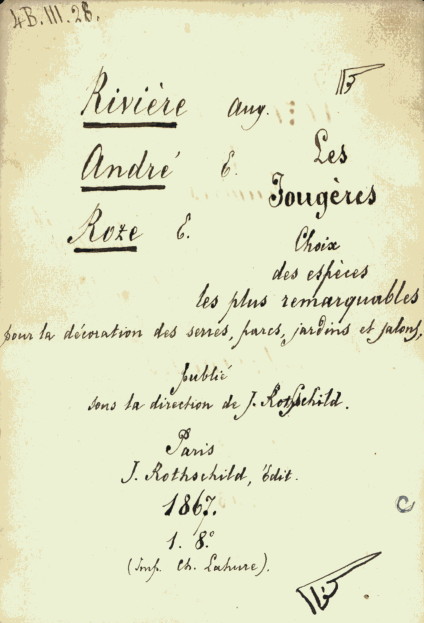 4B.III.28.
Rivière Aug.
André E. Les
Fougères
Roze E.
Choix
des espèces
les plus remarquables
pour la décoration des serres, parcs, jardins et salons,
publié
sous la direction de J. Rothschild.
Paris
J. Rothschild, Édit.
1867.
1. 8.°
(Imp. Ch. Lahure).